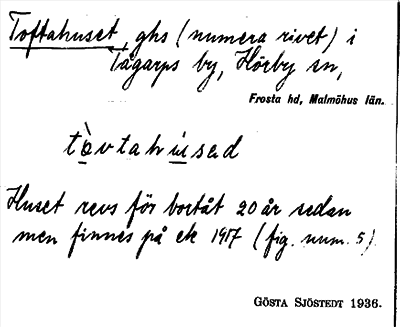 Toftahuset, ghs (numera rivet) i
Tågarps by, Hörby sn,
Frosta hd, Malmöhus län.
tòvtahúsad
Huset revs för bortåt 20 år sedan
men finnes på ek 1917 (fig. num. 5)
GÖSTA SJÖSTEDT 1936.